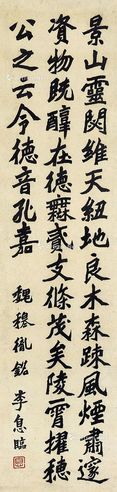 景山靈閟維天紐地良木森疎風煙肅邃
資物既醇在德無貳支條茂矣陵霄擢穗
公之云令德音孔嘉
魏穆胤銘 李息臨